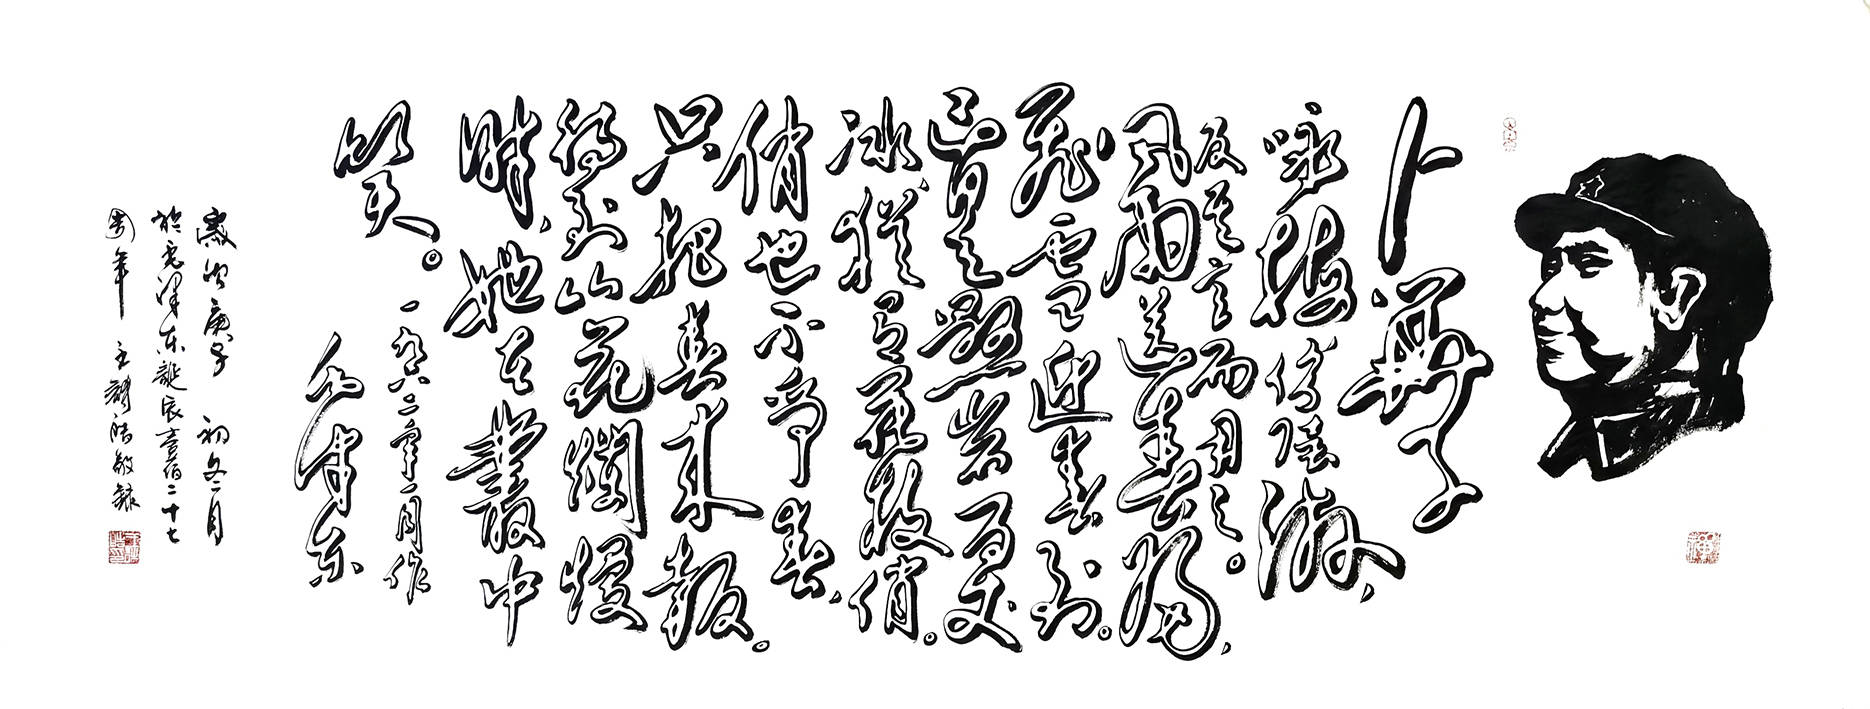 卜算子
咏梅 仿陆游、
反其意而用之。
风雨送春归，
飞雪迎春到。
已是悬岩百丈
冰、犹有花枝俏。
俏也不争春、
只把春来报。
待到山花烂熳
时、她在叢中
笑。
一九六二年一月作
毛泽东
歲次庚子 初冬二月
於毛泽东诞辰壹佰二十七
周年